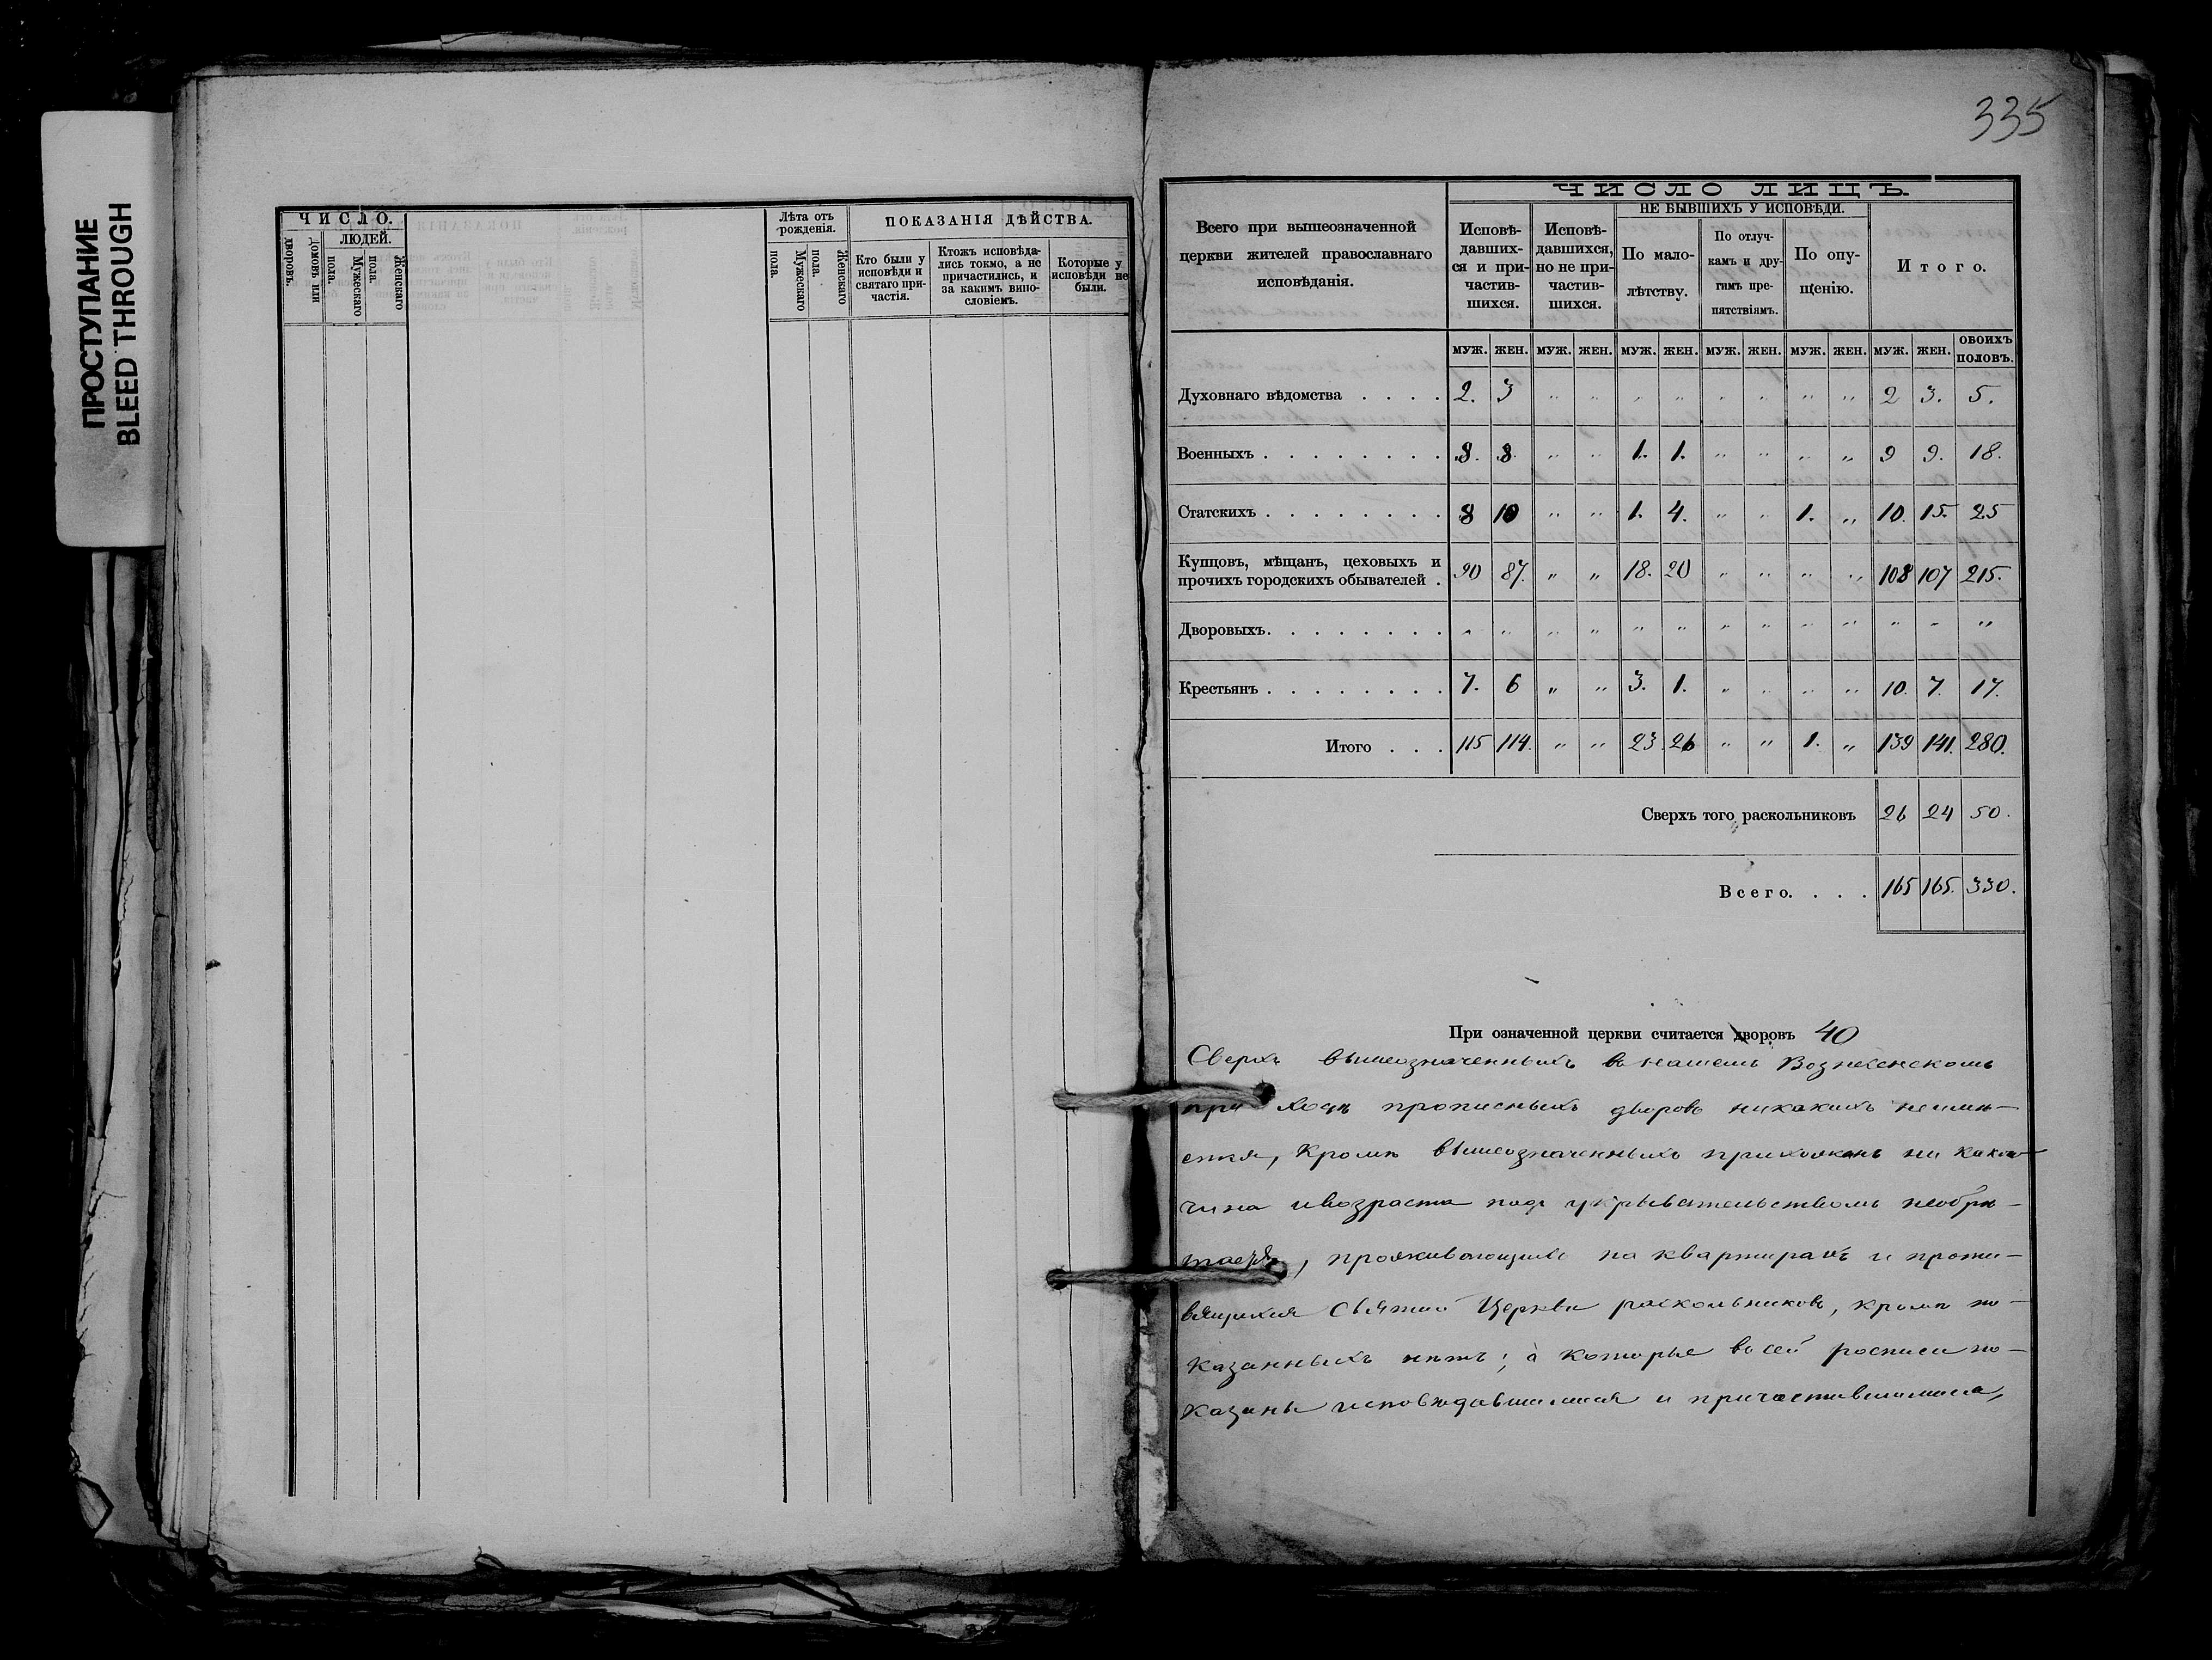 ПРОСТУПАНИЕ
BLEED THROUGH
ЧИСЛО.
ЛЮДЕЙ.
Домовъ или дворовъ.
Мужескаго пола.
Женскаго пола.
Лѣта отъ рожденія.
Мужескаго пола.
Женскаго пола.
ПОКАЗАНІЯ ДѢЙСТВА.
Кто были у исповѣди и святаго причастія.
Ктожъ исповѣдались токмо, а не причастились, и за какимъ винословіемъ.
Которые у исповѣди не были.
335
Всего при вышеозначенной
церкви жителей православнаго
исповѣданія.
ЧИСЛО ЛИЦЪ.
Исповѣдавшихся и причастившихся.
Исповѣдавшихся, но не причастившихся.
НЕ БЫВШИХЪ У ИСПОВѢДИ.
По малолѣтству.
По отлучкамъ и другимъ препятствіямъ.
По опущенію.
Итого.
МУЖ. ЖЕН. МУЖ. ЖЕН. МУЖ. ЖЕН. МУЖ. ЖЕН. МУЖ. ЖЕН. МУЖ. ЖЕН. ОБОИХЪ ПОЛОВЪ.
Духовнаго вѣдомства . . . . 2. 3 " " " " " " " " 2 3. 5.
Военныхъ . . . . . . . . 8. 8. " " 1. 1. " " " " 9 9. 18.
Статскихъ . . . . . . . . 8 10 " " 1. 4. " " 1. " 10. 15. 25
Купцовъ, мѣщанъ, цеховыхъ и
прочихъ городскихъ обывателей . 90 87. " " 18. 20 " " " " 108 107 215.
Дворовыхъ. . . . . . . . " " " " " " " " " " " " "
Крестьянъ . . . . . . . . 7. 6 " " 3. 1. " " " " 10. 7. 17.
Итого . . . 115 114. " " 23. 26 " " 1. " 139 141. 280.
Сверхъ того раскольниковъ 26 24 50.
Всего. . . . 165 165. 330.
При означенной церкви считается дворовъ 40
Сверхъ вышеозначенныхъ въ нашемъ Вознесенскомъ
приходѣ прописныхъ дворовъ никакихъ неимѣ-
ется, кромѣ вышеозначенныхъ прихожанъ ни
чина ивозраста подъ укрывательствомъ необрѣ-
тается, проживающихъ на квартирахъ и проти-
вящихся Святой Церкви раскольниковъ, кромѣ по-
казанныхъ нѣтъ; а которые въ сей росписи по-
казаны исповѣдавшимися и причастившимися,